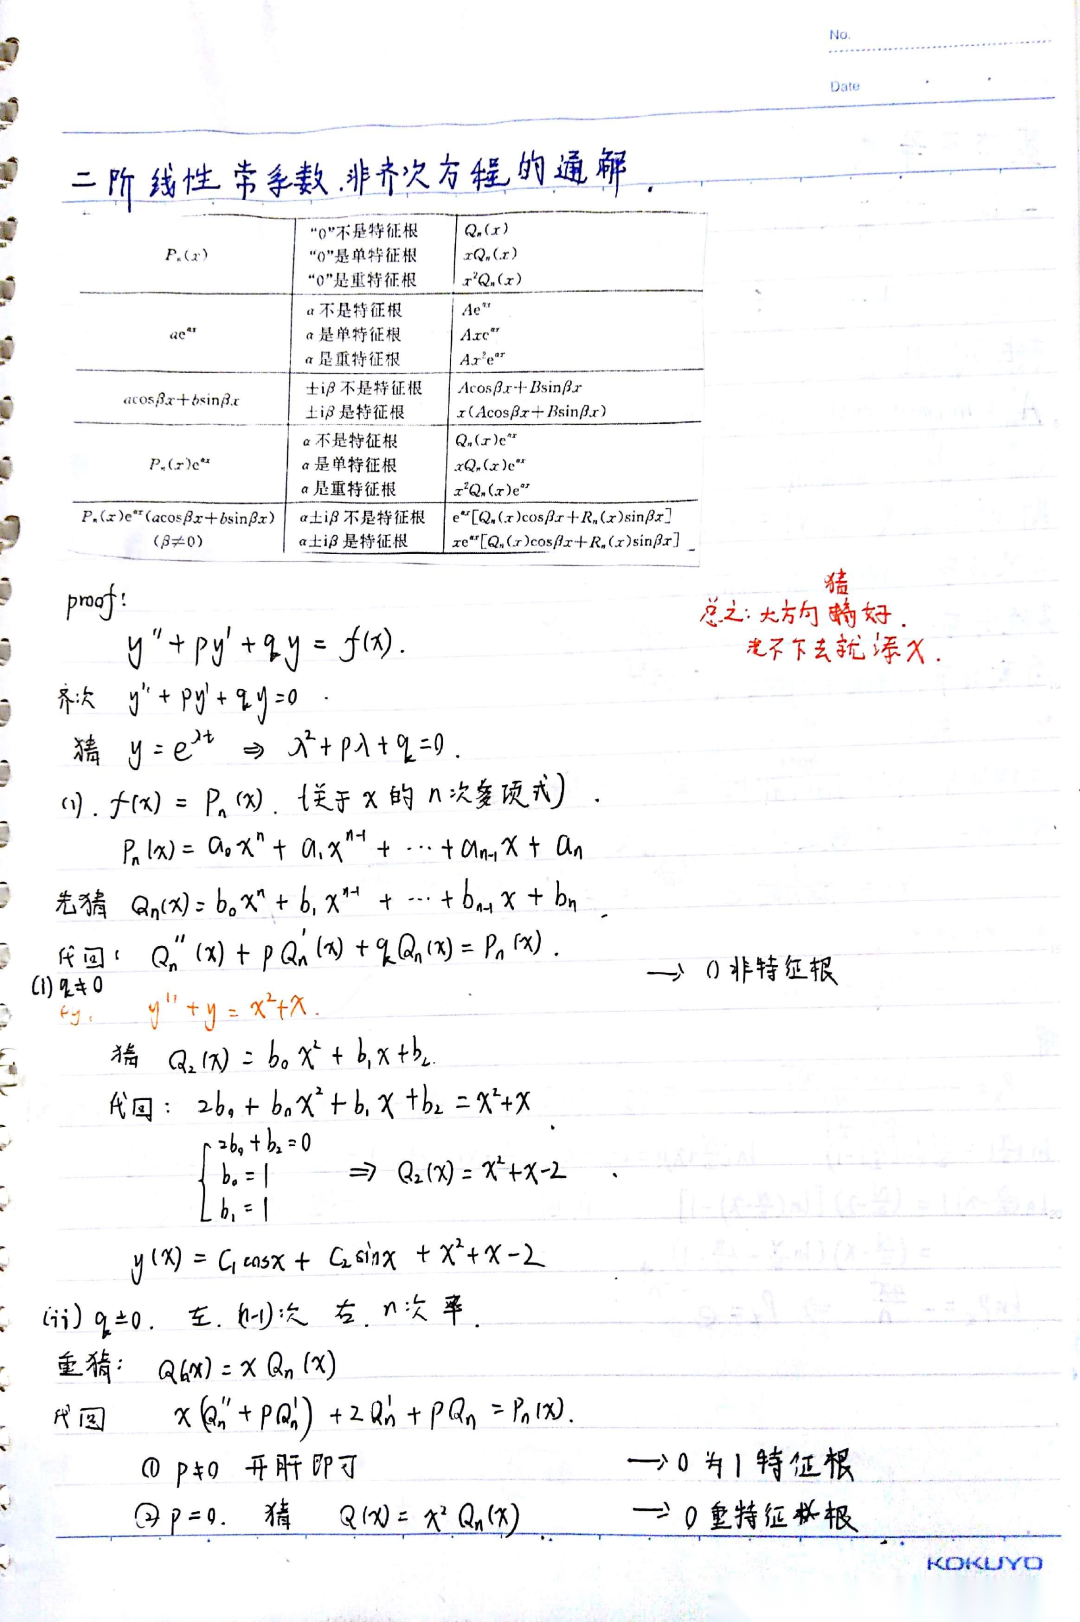 No.
Date
二阶线性常系数非齐次方程的通解.
Pₙ(x)
"0"不是特征根 Qₙ(x)
"0"是单特征根 xQₙ(x)
"0"是重特征根 x²Qₙ(x)
ae^{αx}
α 不是特征根 Ae^{αx}
α 是单特征根 Axe^{αx}
α 是重特征根 Ax²e^{αx}
acosβx+bsinβx
±iβ 不是特征根 Acosβx+Bsinβx
±iβ 是特征根 x(Acosβx+Bsinβx)
Pₙ(x)e^{αx}
α 不是特征根 Qₙ(x)e^{αx}
α 是单特征根 xQₙ(x)e^{αx}
α 是重特征根 x²Qₙ(x)e^{αx}
Pₙ(x)e^{αx}(acosβx+bsinβx)
(β≠0)
α±iβ 不是特征根 e^{αx}[Qₙ(x)cosβx+Rₙ(x)sinβx]
α±iβ 是特征根 xe^{αx}[Qₙ(x)cosβx+Rₙ(x)sinβx]
proof:
猜
总之: 大方向 好.
不下去就添x.
y''+py'+qy = f(x).
齐次 y''+py'+qy=0.
猜 y=e^{λt} ⇒ λ²+pλ+q=0.
(1). f(x) = Pₙ(x). (关于 x 的 n次多项式).
Pₙ(x) = a₀xⁿ + a₁xⁿ⁻¹ + ··· + aₙ₋₁x + aₙ
先猜 Qₙ(x) = b₀xⁿ + b₁xⁿ⁻¹ + ··· + bₙ₋₁x + bₙ
代回: Qₙ''(x) + pQₙ'(x) + qQₙ(x) = Pₙ(x).
(1) q≠0 → 0非特征根
eg. y''+y = x²+x.
猜 Q₂(x) = b₀x² + b₁x + b₂.
代回: 2b₀ + b₀x² + b₁x + b₂ = x²+x
2b₀+b₂=0
b₀=1 ⇒ Q₂(x) = x²+x-2
b₁=1
y(x) = C₁cosx + C₂sinx + x²+x-2
(ii) q=0. 左. (n-1)次 右. n次 寄.
重猜: Q(x) = xQₙ(x)
代回 x(Qₙ''+pQₙ') + 2Qₙ' + pQₙ = Pₙ(x).
① p≠0 开肝即可 → 0为1特征根
② p=0. 猜 Q(x) = x²Qₙ(x) → 0重特征根
KOKUYO